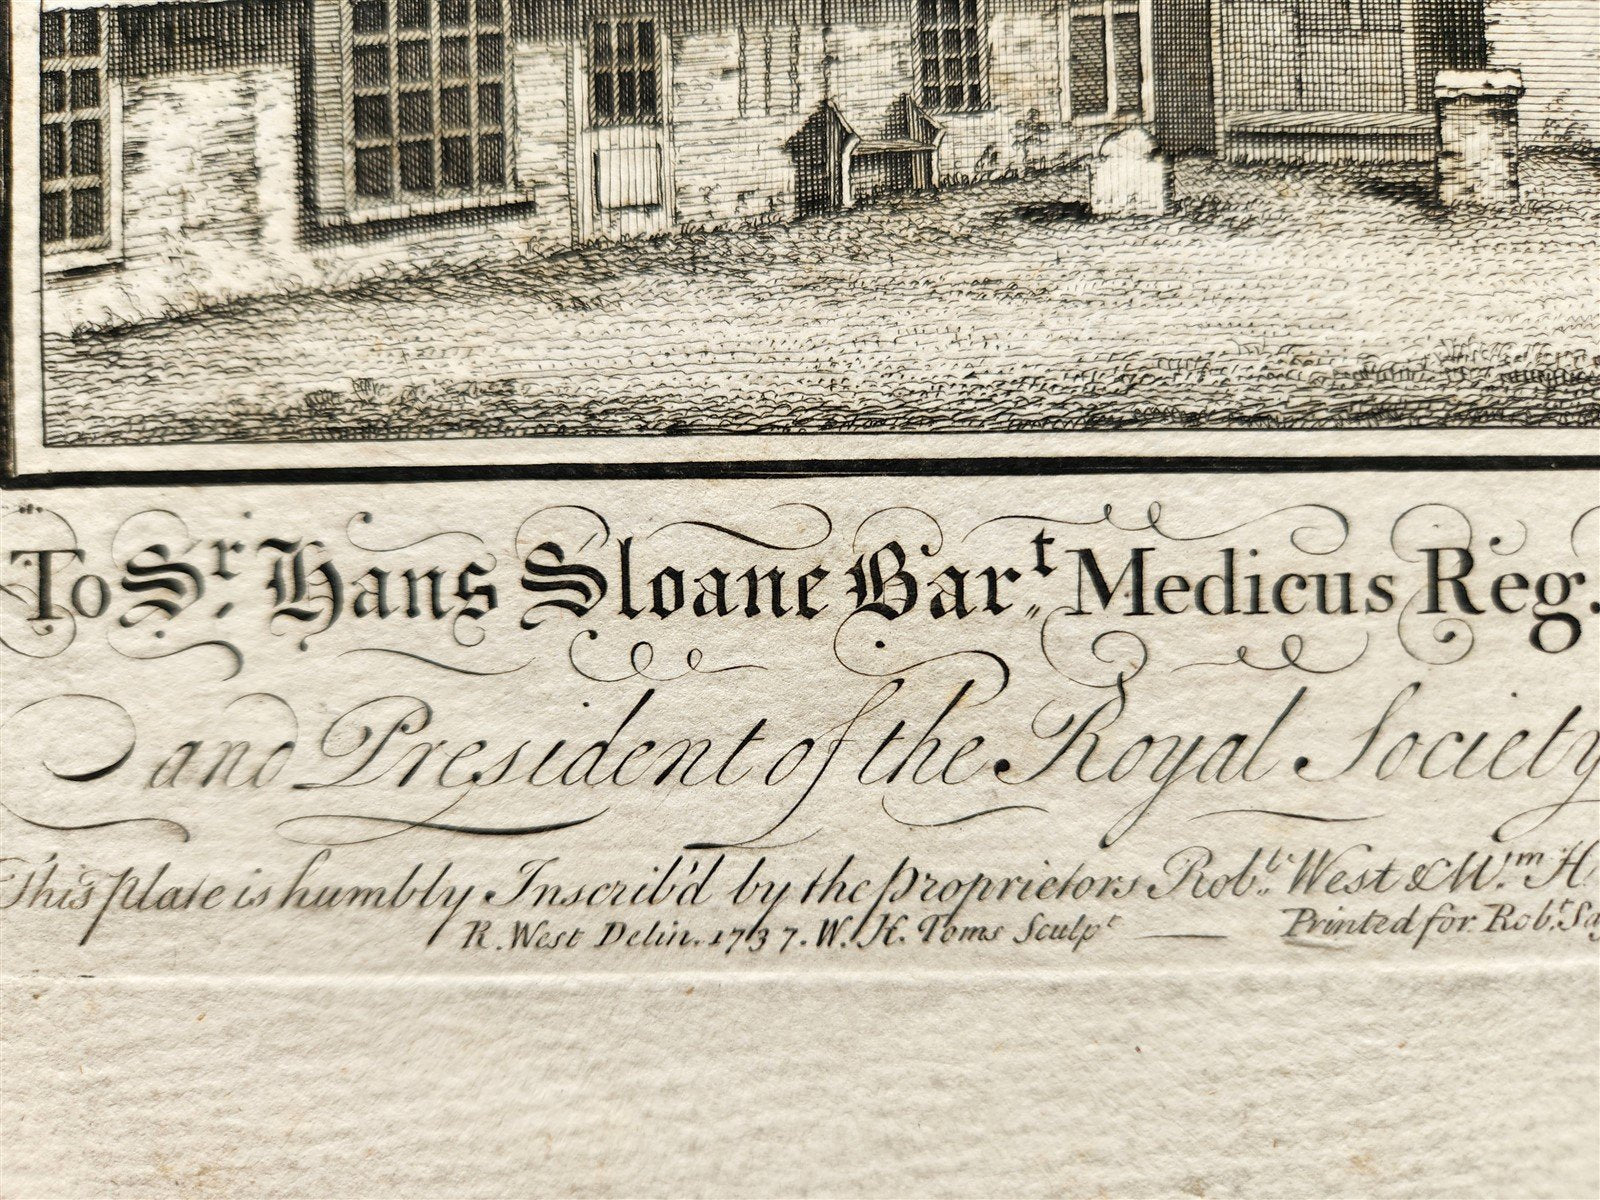 To Sr. Hans Sloane Bart. Medicus Reg.
and President of the Royal Society
This plate is humbly Inscrib'd by the proprietors Robt. West & Wm. H
R. West Delin. 1737. W. H. Toms Sculpt Printed for Robt. Say